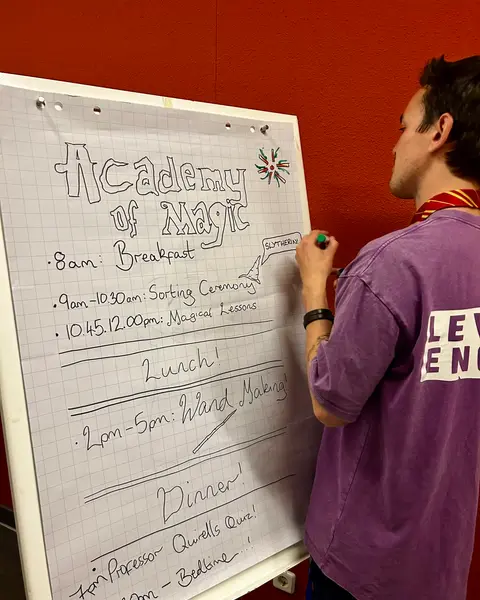 Academy
of Magic
• 8am: Breakfast
SLYTHERIN
• 9am-10.30am: Sorting Ceremony
• 10.45.12.00pm: Magical Lessons
Lunch!
• 2pm-5pm: Wand Making!
Dinner!
7pm Professor Quirells Quiz!
- Bedtime..!
LEV
ENG